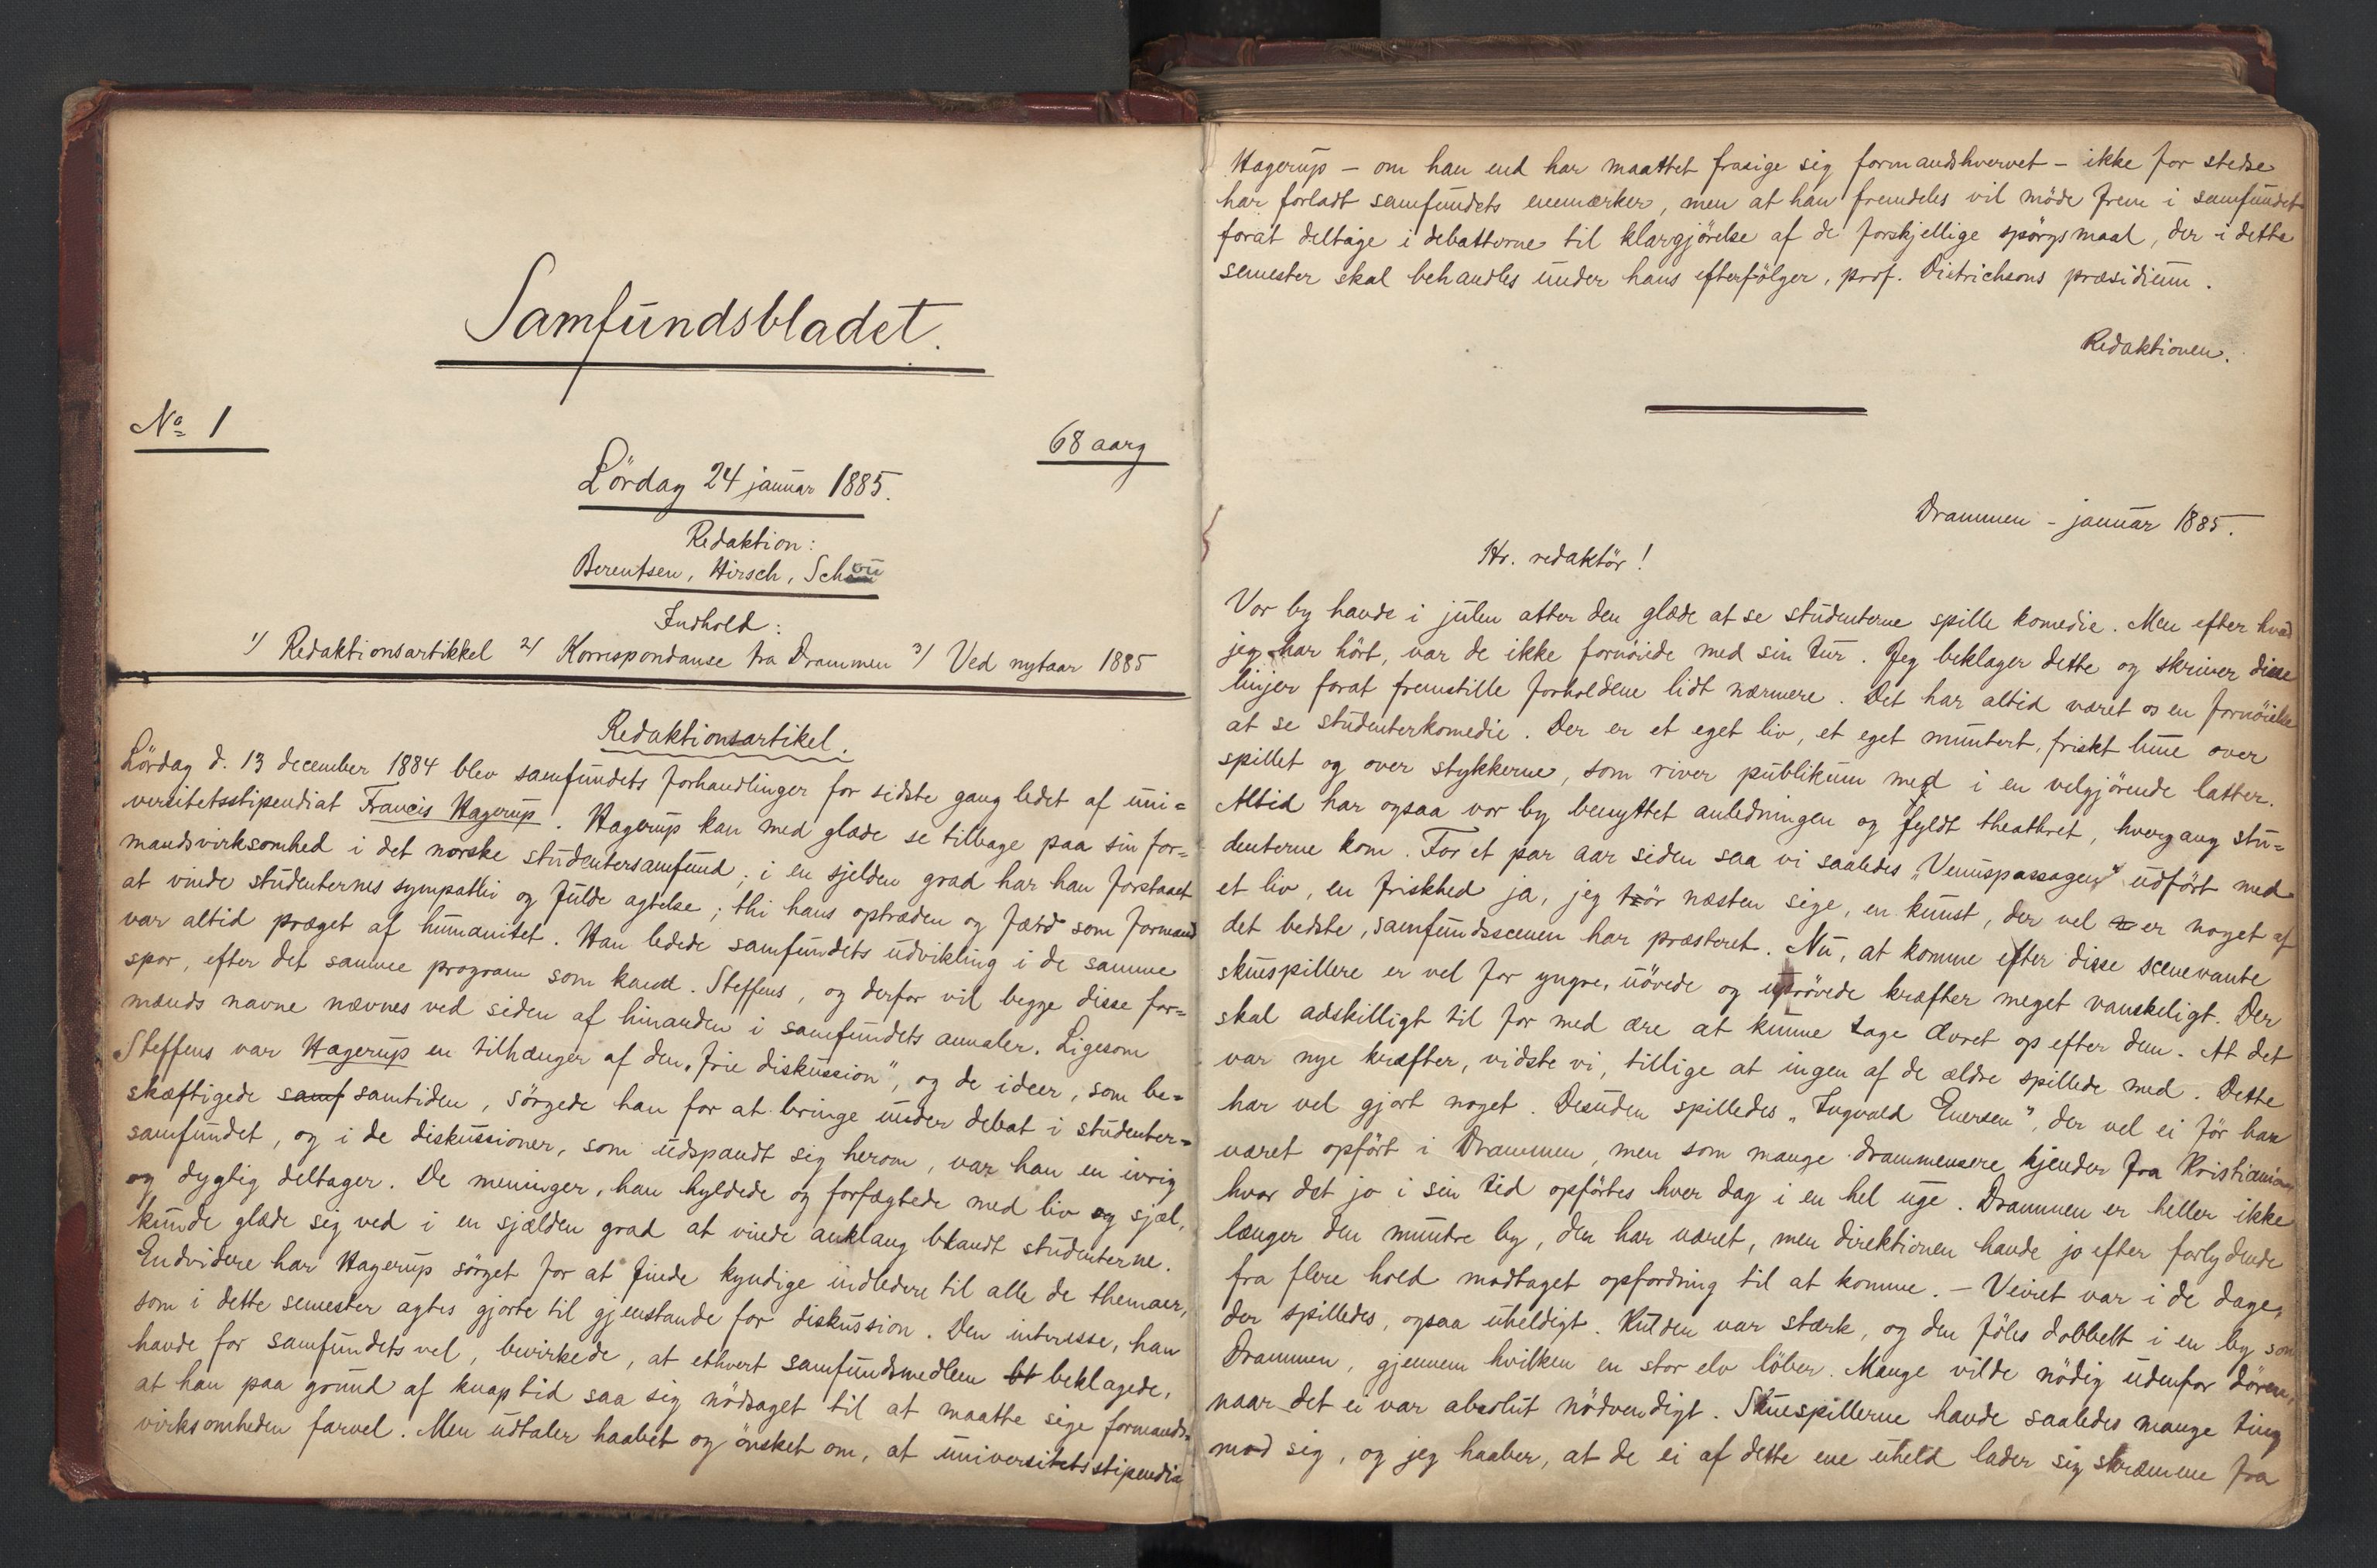 Samfundsbladet.
No 1
68 aarg
Lördag 24 januar 1885.
Redaktion:
Berentsen, Hirsch, Schou
Indhold:
1/ Redaktionsartikkel 2/ Korrespondanse fra Drammen 3/ Ved nytaar 1885
Redaktionsartikel.
Lördag d. 13 december 1884 blev samfundets forhandlinger for sidste gang ledet af uni=
versitetsstipendiat Francis Hagerup. Hagerup kan med glæde se tilbage paa sin for=
mandsvirksomhed i det norske studentersamfund; i en sjelden grad har han forstaaet
at vinde studenternes sympathi og fulde agtelse; thi hans optræden og færd som formand
var altid præget af humanitet. Han ledede samfundets udvikling i de samme
spor, efter det samme program som kand. Steffens, og derfor vil begge disse for=
mænds navne nævnes ved siden af hinanden i samfundets annaler. Ligesom
Steffens var Hagerup en tilhænger af den „frie diskussion", og de ideer, som be=
skæftigede samf samtiden, sörgede han for at bringe under debat i studenter=
samfundet, og i de diskussioner, som udspandt sig herom, var han en ivrig
og dygtig deltager. De meninger, han hyldede og forfægtede med liv og sjæl,
kunde glæde sig ved i en sjælden grad at vinde anklang blandt studenterne.
Endvidere har Hagerup sörget for at finde kyndige indledere til alle de themaer,
som i dette semester agtes gjorte til gjenstande for diskussion. Den interesse, han
havde for samfundets vel, bevirkede, at ethvert samfundsmedlem bt beklagede,
at han paa grund af knap tid saa sig nödsaget til at maatte sige formands=
virksomheden farvel. Men udtaler haabet og önsket om, at universitetsstipendia
Hagerup – om han end har maattet frasige sig formandshvervet – ikke for stedse
har forladt samfundets enemærker, men at han fremdeles vil möde frem i samfundet
forat deltage i debatterne til klargjörelse af de forskjellige spörgsmaal, der i dette
semester skal behandles under hans efterfölger, prof. Dietrichsons præsidium.
Redaktionen.
Drammen – januar 1885.
Hr. redaktör!
Vor by havde i julen atter den glæde at se studenterne spille komedie. Men efter hvad
jeg har hört, var de ikke fornöiede med sin tur. Jeg beklager dette og skriver disse
linjer forat fremstille forholdene lidt nærmere. Det har altid været os en fornöielse
at se studenterkomedie. Der er et eget liv, et eget muntert, friskt lune over
spillet og over stykkerne, som river publikum med i en velgjörende latter.
Altid har ogsaa vor by benyttet anledningen og fyldt theathret, hvergang stu=
denterne kom. For et par aar siden saa vi saaledes „Venuspassagen" udfört med
et liv, en friskhed ja, jeg tör næsten sige, en kunst, der vel er noget af
det bedste, samfundsscenen har præsteret. Nu, at komme efter disse scenevante
skuespillere er vel for yngre, uövede og upröved­e kræfter meget vanskeligt. Der
skal adskilligt til for med ære at kunne tage Ævret op efter dem. At det
var nye kræfter, vidste vi, tillige at ingen af de ældre spillede med. Dette
har vel gjort noget. Desuden spilledes „Ingvald Enersen", der vel ei för har
været opfört i Drammen, men som mange drammensere kjender fra Kristiania,
hvor det jo i sin tid opförtes hver dag i en hel uge. Drammen er heller ikke
længer den muntre by, den har været, men direktionen havde jo efter forlydende
fra flere hold modtaget opfordring til at komme. – Veiret var i de dage,
der spilledes, ogsaa uheldigt. Kulden var stærk, og den föles dobbelt i en by som
Drammen, gjennem hvilken en stor elv löber. Mange vilde nödig udenfor dören,
naar det ei var absolut nödvendigt. Skuespillerne havde saaledes mange ting
mod sig, og jeg haaber, at de ei af dette ene uheld lader sig skræmme fra